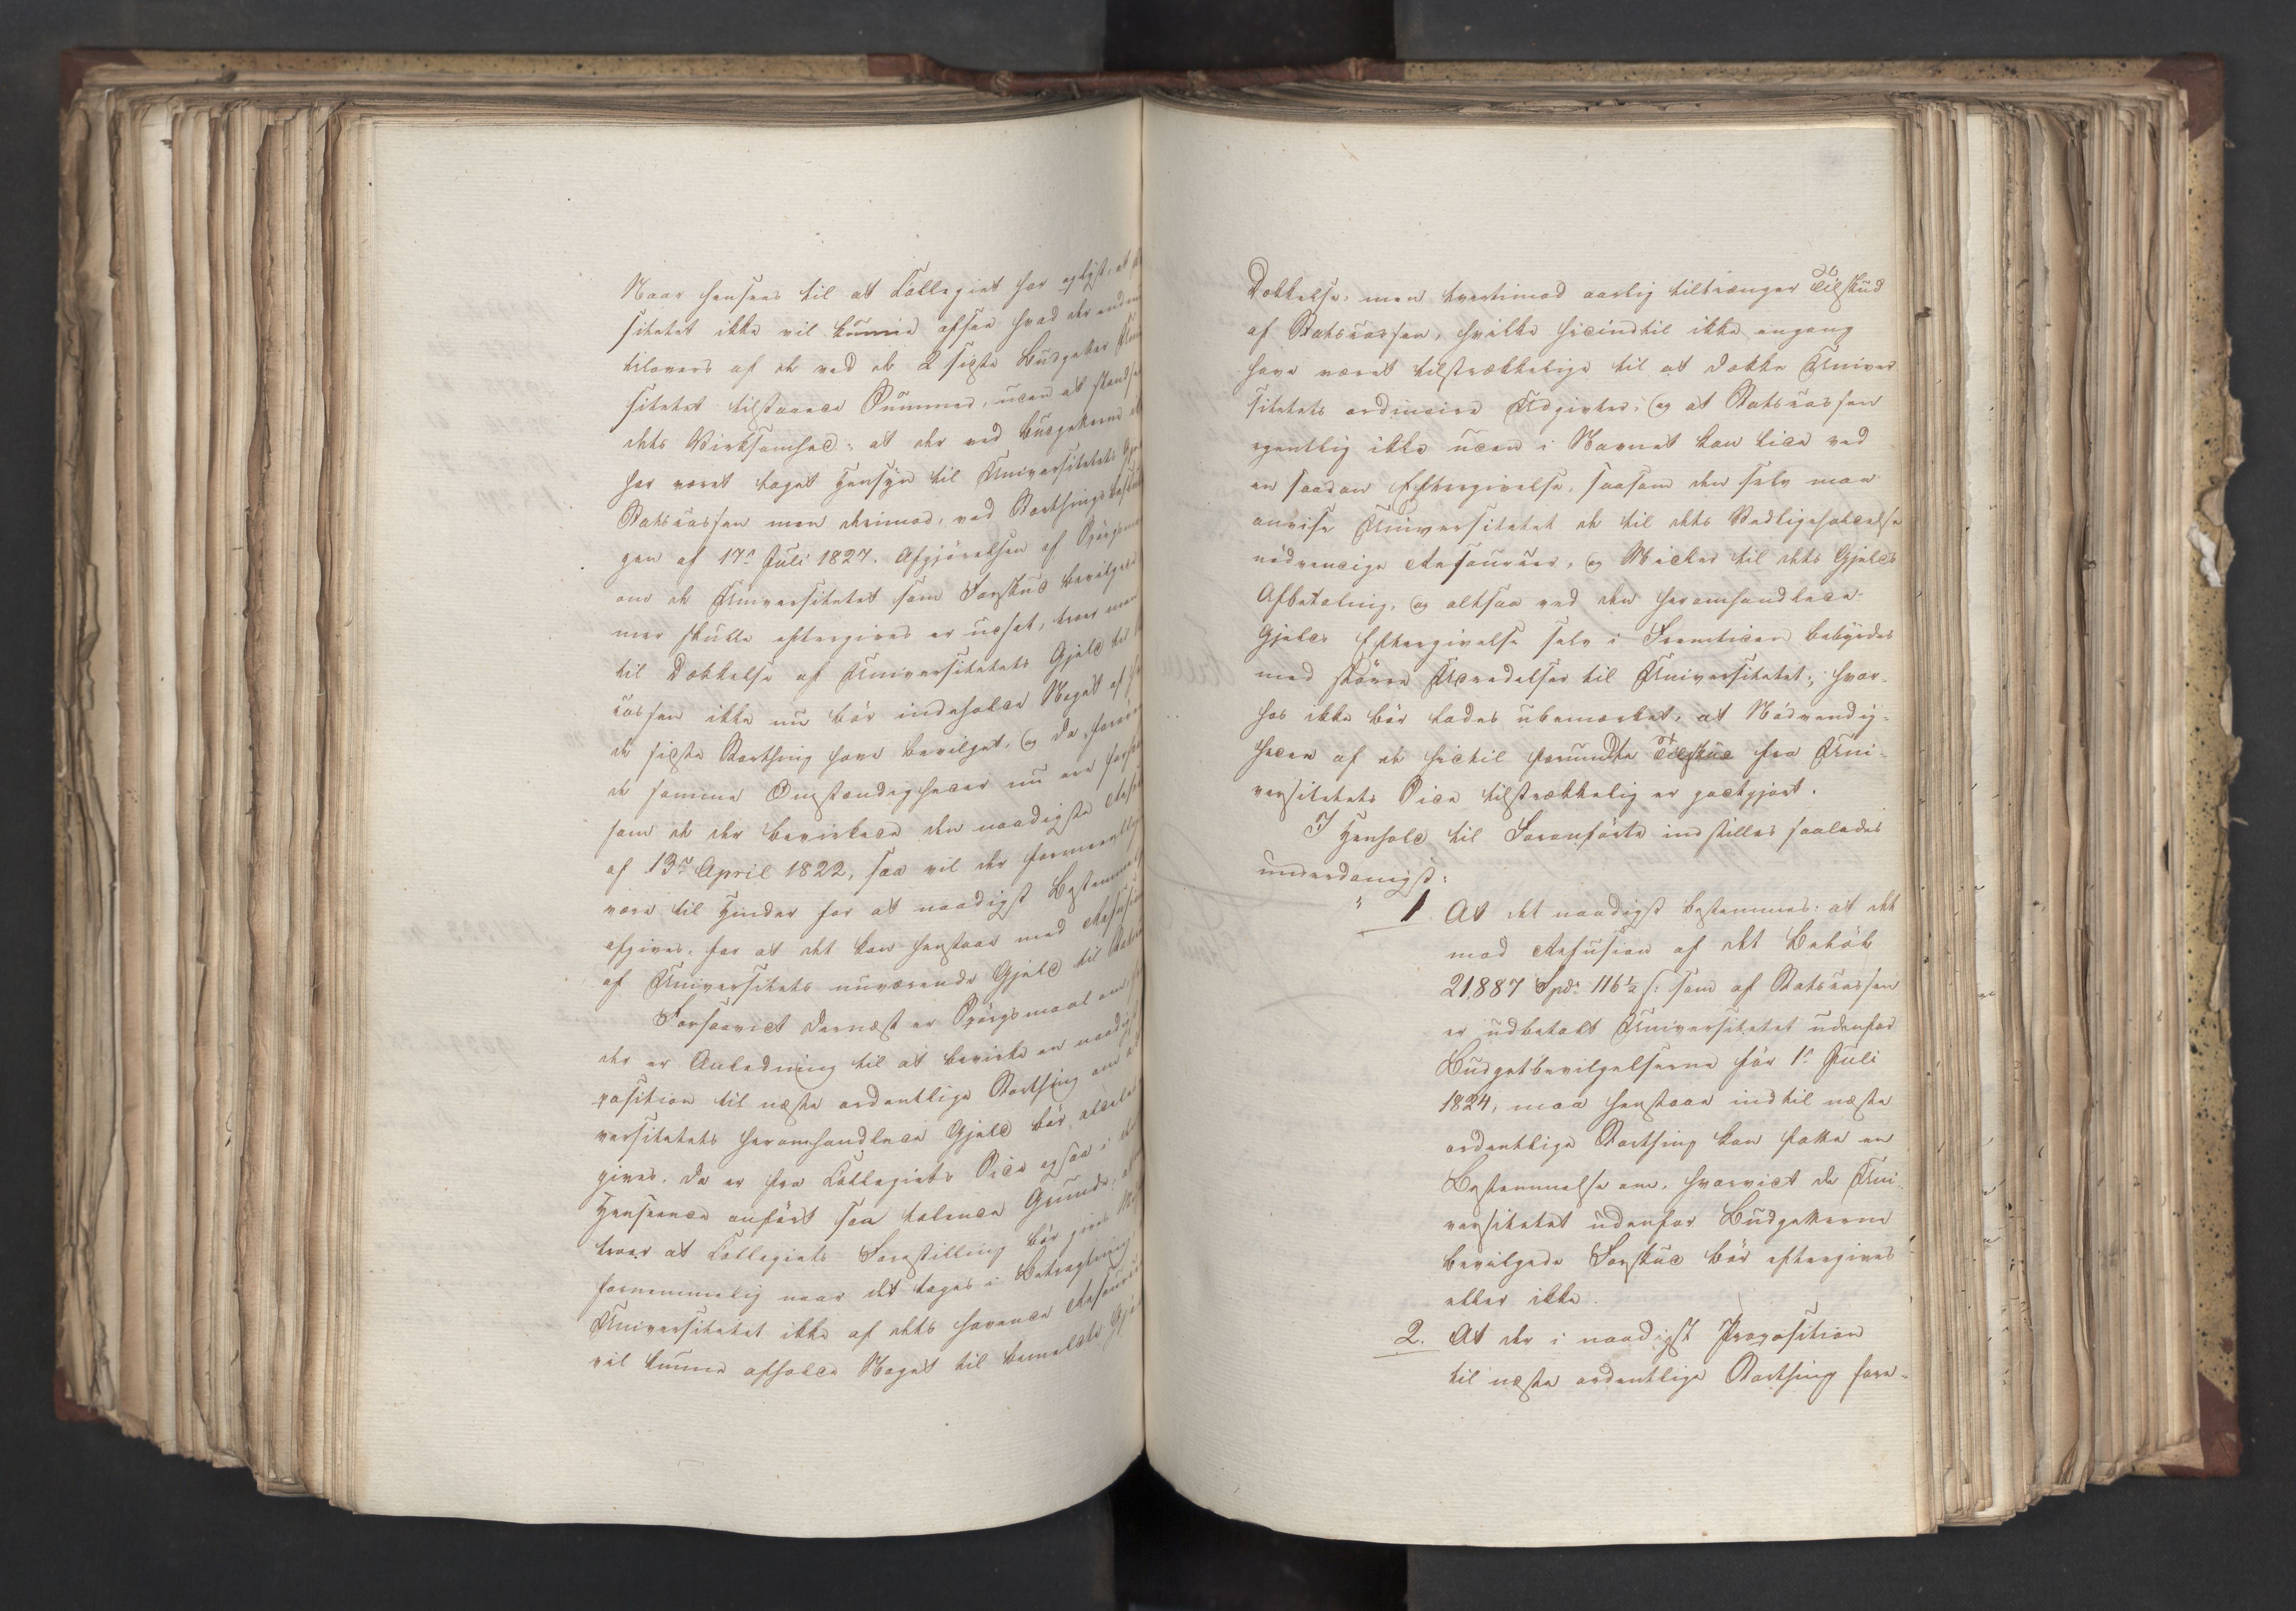 Naar henses til at Collegiet har oplyst, at
sitetet ikke vil kunne afsee hvad der endnu
tilovers af de ved de 2 sidste Budgetter
sitetet tilstaaede Summer, uden at standse
dets Virksomhed; at der ved Budgetterne
har været taget Hensyn til Universitetets
Statskassen men derimod, ved Storthings
gen af 17de Juli 1827. Afgjørelsen af Spørgsm
om de Universitetet som Forskud bevilgede
mer skulle eftergives er udsat, troer man
til Dækkelse af Universitetets Gjeld til
kassen ikke nu bør indeholdes Noget af
de sidste Storthing have bevilget, og da
de samme Omstændigheder nu ere
som de der bevirkede den naadigste
af 13de April 1822, saa vil der formeentlig
være til Hinder for at naadigst Bestemmel
afgives, for at det kan henstaae med Refusion
af Universitetets nuværende Gjeld til Stats
Forsaavidt dernæst er Spørgsmaal om
der er Anledning til at bevirke en naadigst
position til næste ordentlige Storthing om at
versitetets heromhandlede Gjeld bør
gives, da er fra Collegiets Side ogsaa i
Henseende anført saa talende Grunde, at
troer at Collegiets Forestilling bør gives
fornemmelig naar det tages i Betragtning
Universitetet ikke af dets havende
vil kunne afholde Noget til bemeldte
Dækkelse, men tvertimod aarlig tiltrænger Tilskud
af Statskassen, hvilke hidindtil ikke engang
have været tilstrækkelige til at dække Univer
sitetets ordinaire Udgivter; og at Statskassen
egentlig ikke uden i Navnet kan lide ved
en saadan Eftergivelse, saasom den selv maa
anvise Universitetet de til dets Vedligeholdelse
nødvendige Ressourcer, og Midler til dets Gjelds
Afbetaling, og altsaa ved den heromhandlede
Gjelds Eftergivelse selv i Fremtiden bebyrdes
med større Udredelser til Universitetet; hvor-
hos ikke bør lades ubemærket, at Nødvendig-
heden af de hidtil forundte Tilskud fra Uni-
versitetets Side tilstrækkelig er godtgjort.
I Henhold til Foranførte indstilles saaledes
underdanigst:
" 1. At det naadigst bestemmes: at det
med Refusion af det Beløb
21,887 Spd. 116½ s: som af Statskassen
er udbetalt Universitetet udenfor
Budgetbevilgelserne før 1ste Juli
1824, maa henstaae indtil næste
ordentlige Storthing kan fatte en
Bestemmelse om, hvorvidt de Uni-
versitetet udenfor Budgetterne
bevilgede Forskud bør eftergives
eller ikke.
2. At der i naadigst Proposition
til næste ordentlige Storthing fore-